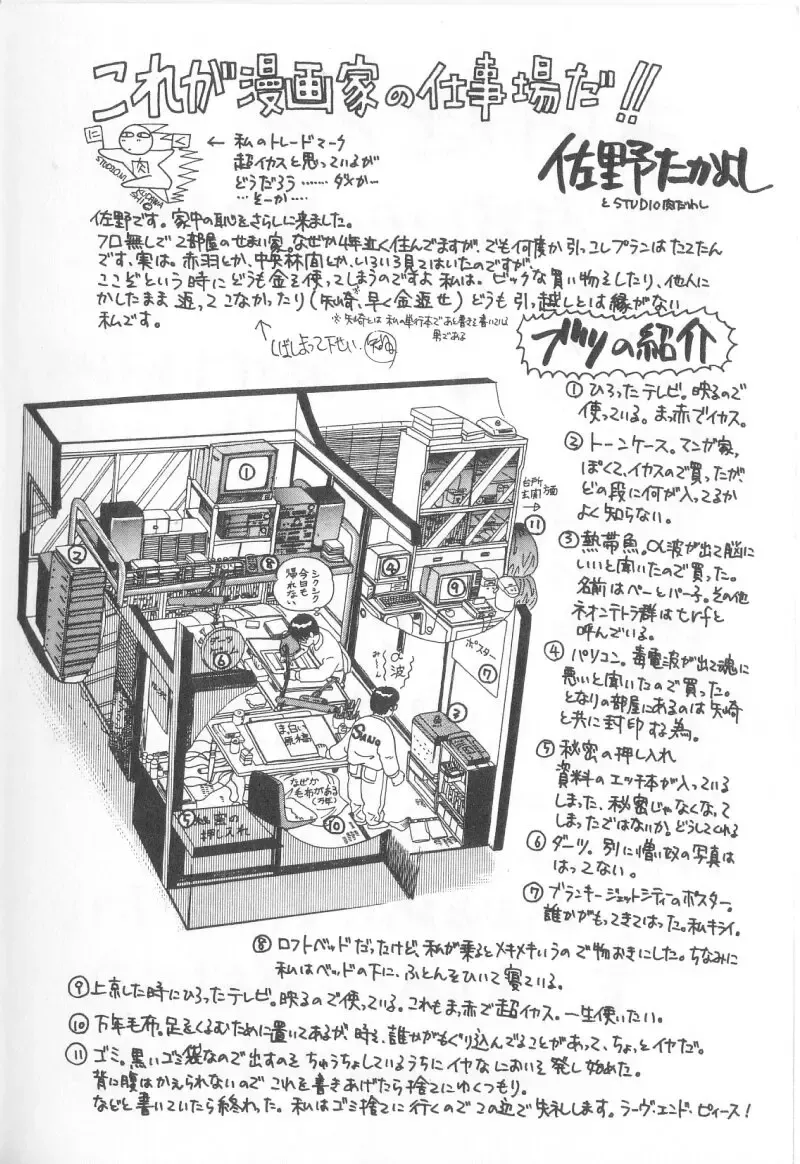 これが漫画家の仕事場だ!!
佐野たかよし
とSTUDIO肉たわし
に
く
肉
← 私のトレードマーク
超イカスと思っているが
どうだろう……ダメか…
…そーか….
佐野です。家中の恥をさらしに来ました。
フロ無しで2部屋のせまい家。なぜか4年近く住んでますが、でも何度か引っこしプランはたてたん
です、実は。赤羽とか、中央林間とか、いろいろ見てはいたのですが、
ここぞという時にどうも金を使ってしまうのですよ私は。ビックな買い物をしたり、他人に
かしたまま返ってこなかったり(矢崎※、早く金返せ)どうも引っ越しとは縁がない
私です。
※矢崎とは私の単行本であと書きを書いている
男である
ブツの紹介
① ひろったテレビ。映るので
使っている。まっ赤でイカス。
② トーンケース。マンガ家っ
ぽくて、イカスので買ったが、
どの段に何が入ってるか
よく知らない。
③ 熱帯魚。α波が出て脳に
いいと聞いたので買った。
名前はペーとパー子。その他
ネオンテトラ群はtrfと
呼んでいる。
④ パソコン。毒電波が出て魂に
悪いと聞いたので買った。
となりの部屋にあるのは矢崎
と共に封印する為。
⑤ 秘密の押し入れ
資料のエッチ本が入っている
しまった、秘密じゃなくなって
しまったではないか。どうしてくれる
⑥ ダーツ。別に憎い奴の写真は
はってない。
⑦ ブランキージェットシティーのポスター。
誰かがもってきてはった。私キライ。
台所
玄関方面
→
①
②
③
④
⑤
⑥
⑦
⑧
⑨
⑩
⑪
シクシク
今日も
帰れない
α波
みーん
ポスター
まっ白い
原稿
SANO
なぜか
毛布がある
(万年)
秘密の
押し入れ
⑧ ロフトベッドだったけど、私が乗るとメキメキいうので物おきにした。ちなみに
私はベッドの下に、ふとんをひいて寝ている。
⑨ 上京した時にひろったテレビ。映るので使っている。これもまっ赤で超イカス。一生使いたい。
⑩ 万年毛布。足をくるむために置いてあるが、時々、誰かがもぐり込んでることがあって、ちょっとイヤだ。
⑪ ゴミ。黒いゴミ袋なので出すのをちゅうちょしているうちにイヤなにおいを発し始めた。
背に腹はかえられないのでこれを書きあげたら捨てにゆくつもり。
などと書いていたら終わった。私はゴミ捨てに行くのでこの辺で失礼します。ラーヴ・エンド・ピィース!